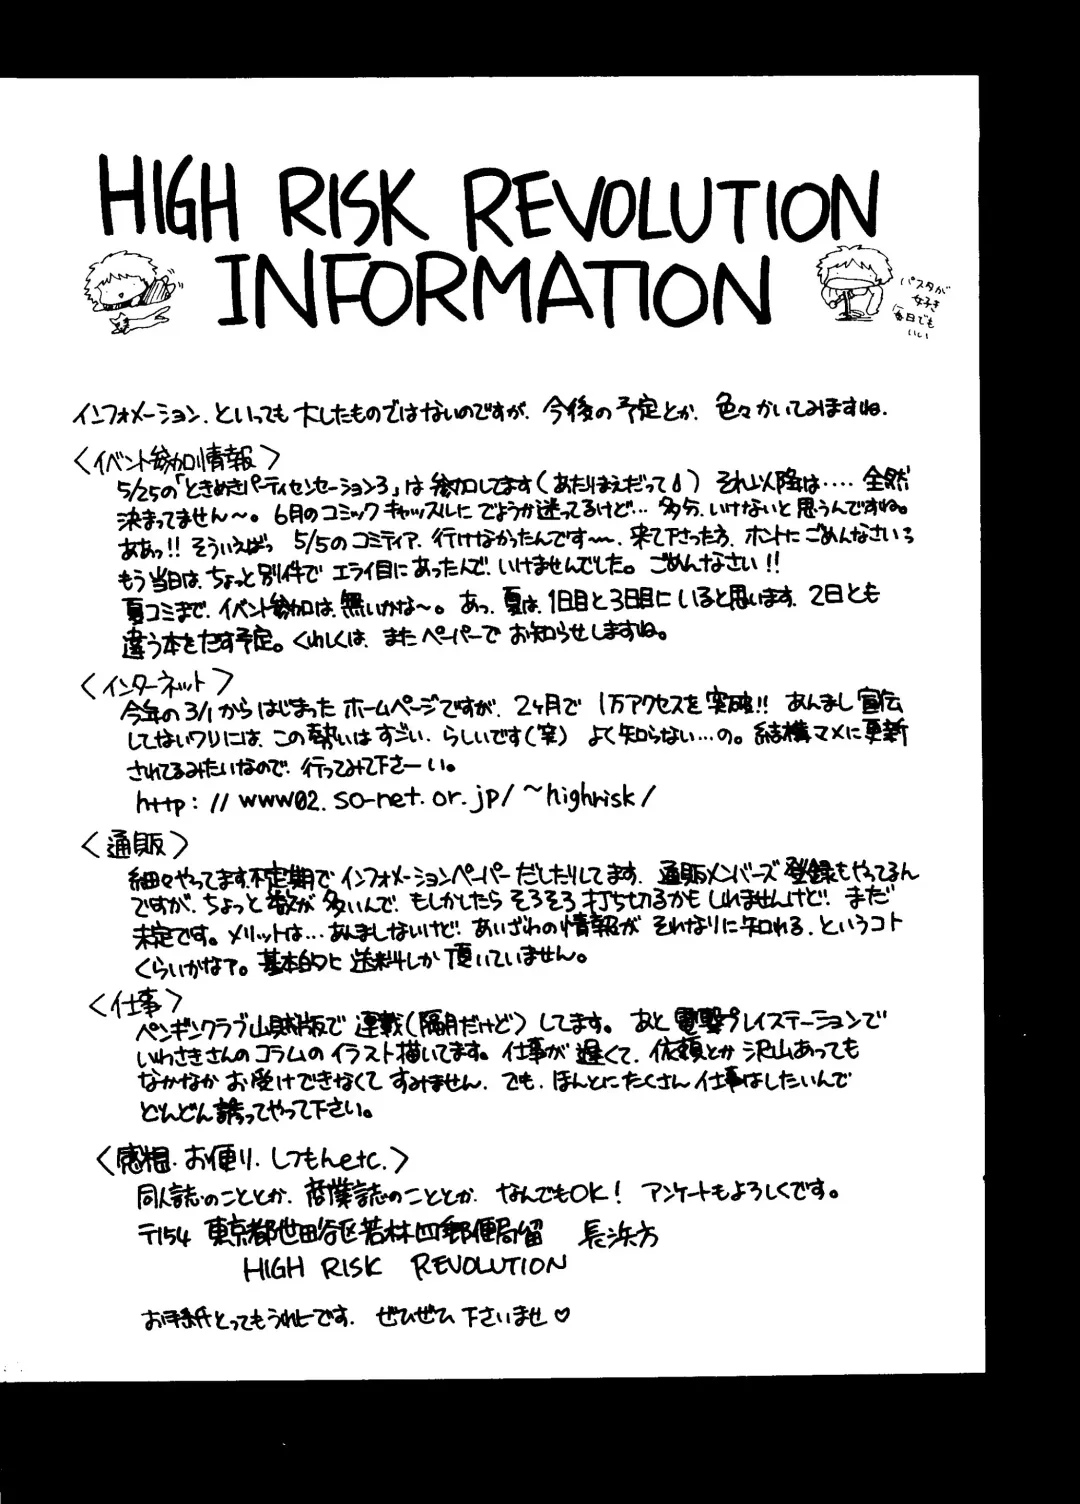 HIGH RISK REVOLUTION
INFORMATION
パスタが
女子き
毎日でも
いい
インフォメーション、といっても大したものではないのですが、今後の予定とか、色々かいてみますね。
〈イベント参加情報〉
5/25の「ときめきパーティセンセーション3」は参加してます(あたりまえだって💧) それ以降は‥‥全然
決まってません〜。6月のコミックキャッスルにでようか迷ってるけど…多分、いけないと思うんですね。
ああっ!! そういえばっ 5/5のコミティア、行けなかったんです〜〜、来て下さった方、ホントにごめんなさいっ
もう当日は、ちょっと別件でエライ目にあったんで、いけませんでした。ごめんなさい!!
夏コミまで、イベント参加は、無いかな〜。あっ、夏は、1日目と3日目にいると思います、2日とも
違う本をだす予定。くわしくは、またペーパーでお知らせしますね。
〈インターネット〉
今年の3/1からはじまったホームページですが、2ヶ月で1万アクセスを突破!! あんまし宣伝
してないワリには、この勢いはすごい、らしいです(笑) よく知らない…の。結構マメに更新
されてるみたいなので、行ってみて下さーい。
http://www02.so-net.or.jp/~highrisk/
〈通販〉
細々やってます、不定期でインフォメーションペーパーだしたりしてます、通販メンバーズ登録もやってるん
ですが、ちょっと数が多いんで、もしかしたらそろそろ打ち切るかもしれませんけど、まだ
未定です。メリットは…あんましないけど、あいざわの情報がそれなりに知れる、というコト
くらいかなア。基本的に送料しか頂いていません。
〈仕事〉
ペンギンクラブ山賊版で連載(隔月だけど)してます。あと電撃プレイステーションで
いわさきさんのコラムのイラスト描いてます。仕事が遅くて、依頼とか沢山あっても
なかなかお受けできなくてすみません、でも、ほんとにたくさん仕事はしたいんで
どんどん誘ってやって下さい。
〈感想、お便り、しつもんetc.〉
同人誌のこととか、商業誌のこととか、なんでもOK! アンケートもよろしくです。
〒154 東京都世田谷区若林四郵便局留 長浜方
HIGH RISK REVOLUTION
お手紙とってもうれしーです、ぜひぜひ下さいませ♡